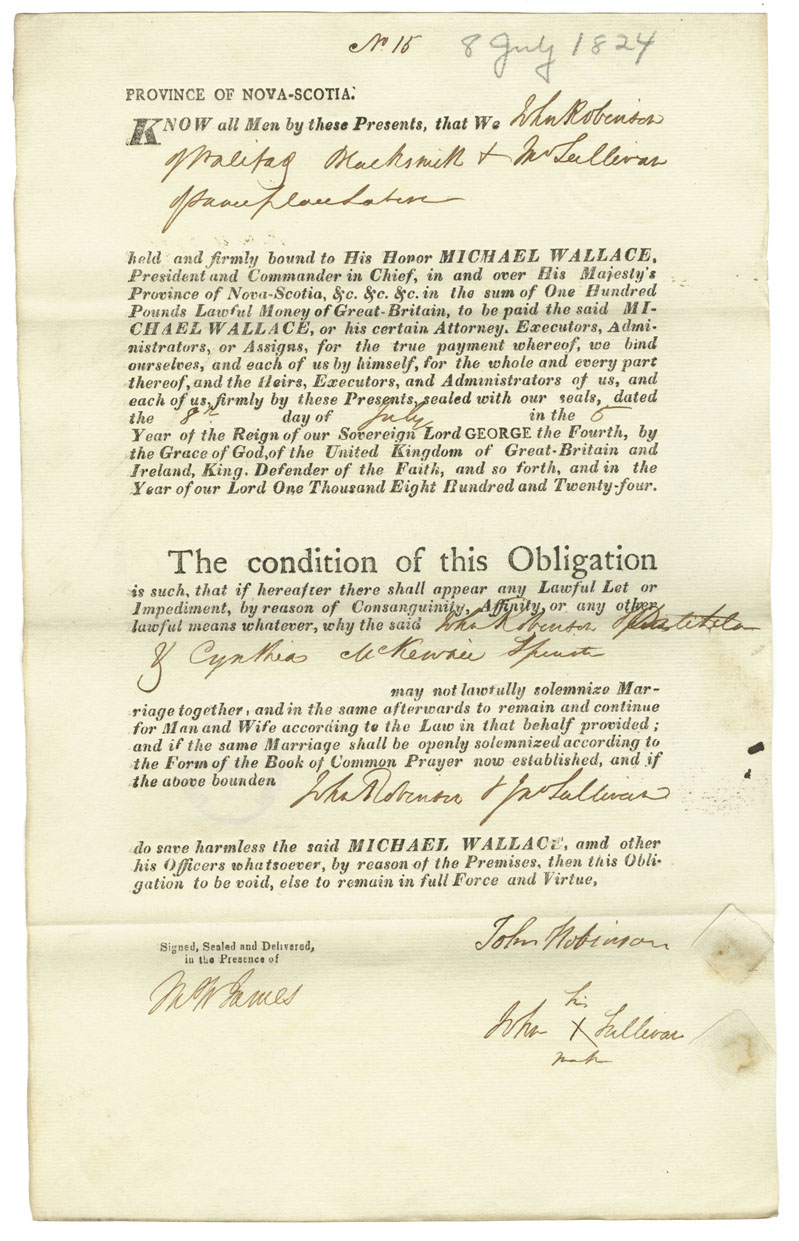 No 15 8 July 1824
PROVINCE OF NOVA-SCOTIA.
KNOW all Men by these Presents, that We John Robinson
of Halifax Blacksmith & Jno Sullivan
of same place
held and firmly bound to His Honor MICHAEL WALLACE,
President and Commander in Chief, in and over His Majesty's
Province of Nova-Scotia, &c. &c. &c. in the sum of One Hundred
Pounds Lawful Money of Great-Britain, to be paid the said MI-
CHAEL WALLACE, or his certain Attorney. Executors, Admi-
nistrators, or Assigns, for the true payment whereof, we bind
ourselves, and each of us by himself, for the whole and every part
thereof, and the Heirs, Executors, and Administrators of us, and
each of us, firmly by these Presents, sealed with our seals, dated
the 8th day of July in the 5
Year of the Reign of our Sovereign Lord GEORGE the Fourth, by
the Grace of God, of the United Kingdom of Great-Britain and
Ireland, King. Defender of the Faith, and so forth, and in the
Year of our Lord One Thousand Eight Hundred and Twenty-four.
The condition of this Obligation
is such, that if hereafter there shall appear any Lawful Let or
Impediment, by reason of Consanguinity, Affinity, or any other
lawful means whatever, why the said John Robinson
& Cynthia Spinster
may not lawfully solemnize Mar-
riage together, and in the same afterwards to remain and continue
for Man and Wife according to the Law in that behalf provided;
and if the same Marriage shall be openly solemnized according to
the Form of the Book of Common Prayer now established, and if
the above bounden John Robinson & Jno Sullivan
do save harmless the said MICHAEL WALLACE, amd other
his Officers whatsoever, by reason of the Premises, then this Obli-
gation to be void, else to remain in full Force and Virtue,
Signed, Sealed and Delivered,
in the Presence of
John Robinson
James
his
John X Sullivan
mark